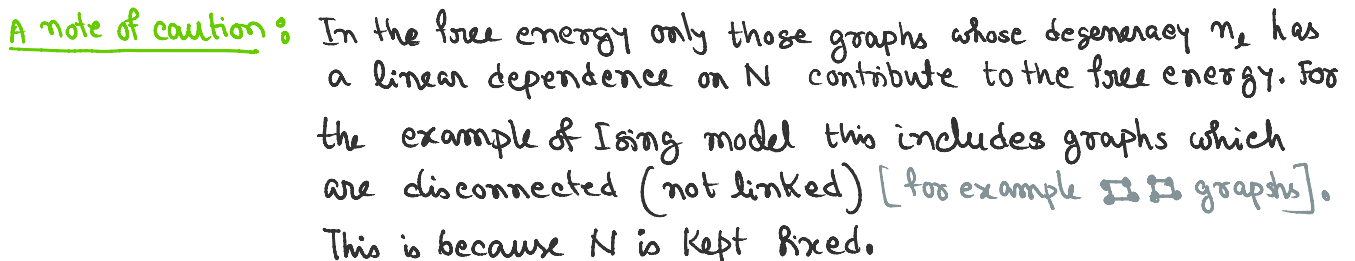 A note of caution: In the free energy only those graphs whose degeneracy n_l has
a linear dependence on N contribute to the free energy. For
the example of Ising model this includes graphs which
are disconnected (not linked) [for example graphs].
This is because N is kept fixed.